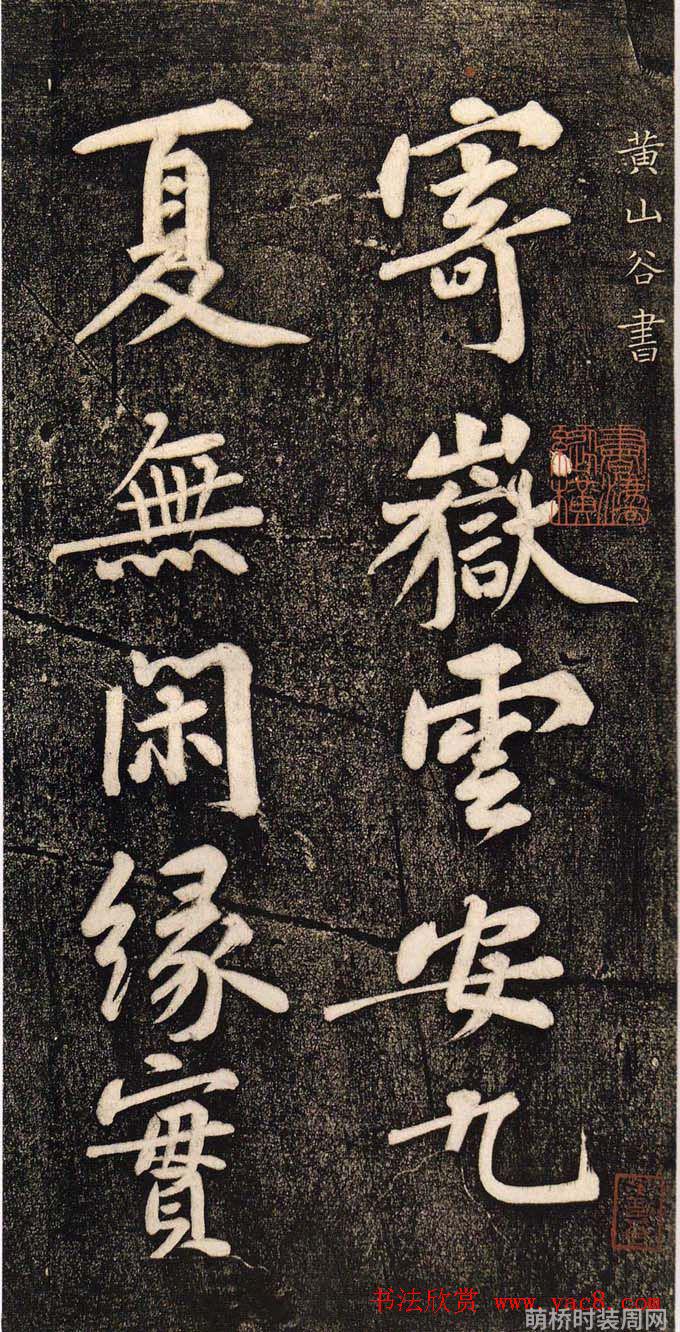 黄山谷書
寄嶽雲安九
夏無閑緣實
书法欣赏 www.yac8.com
萌桥时装周网